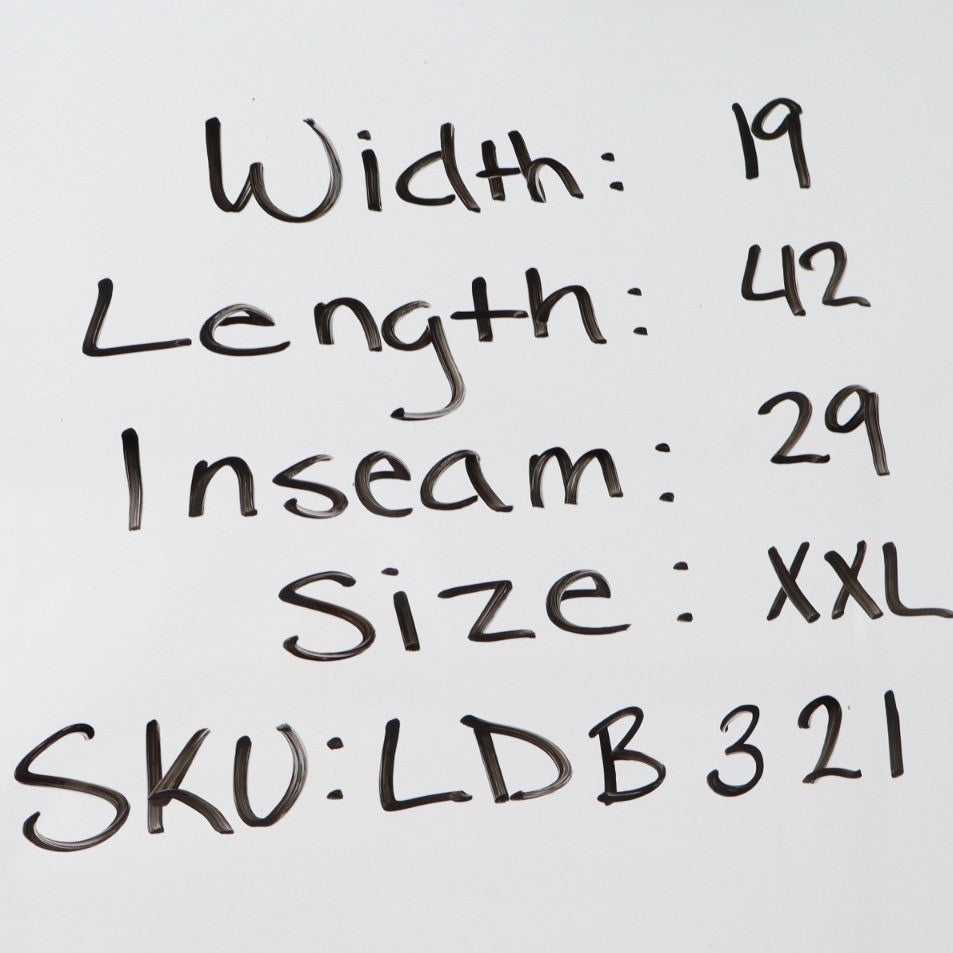 Width: 19
Length: 42
Inseam: 29
Size: XXL
SKU: LDB 321